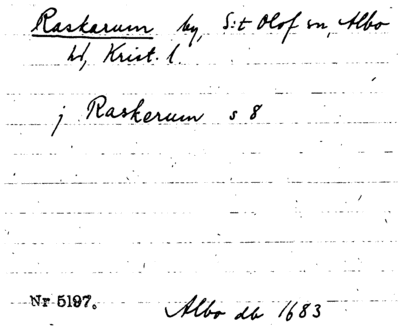 Raskarum by, S:t Olof sn, Albo
hd, Krist. l
j Raskerum s 8
Nr 5197.
Albo db 1683